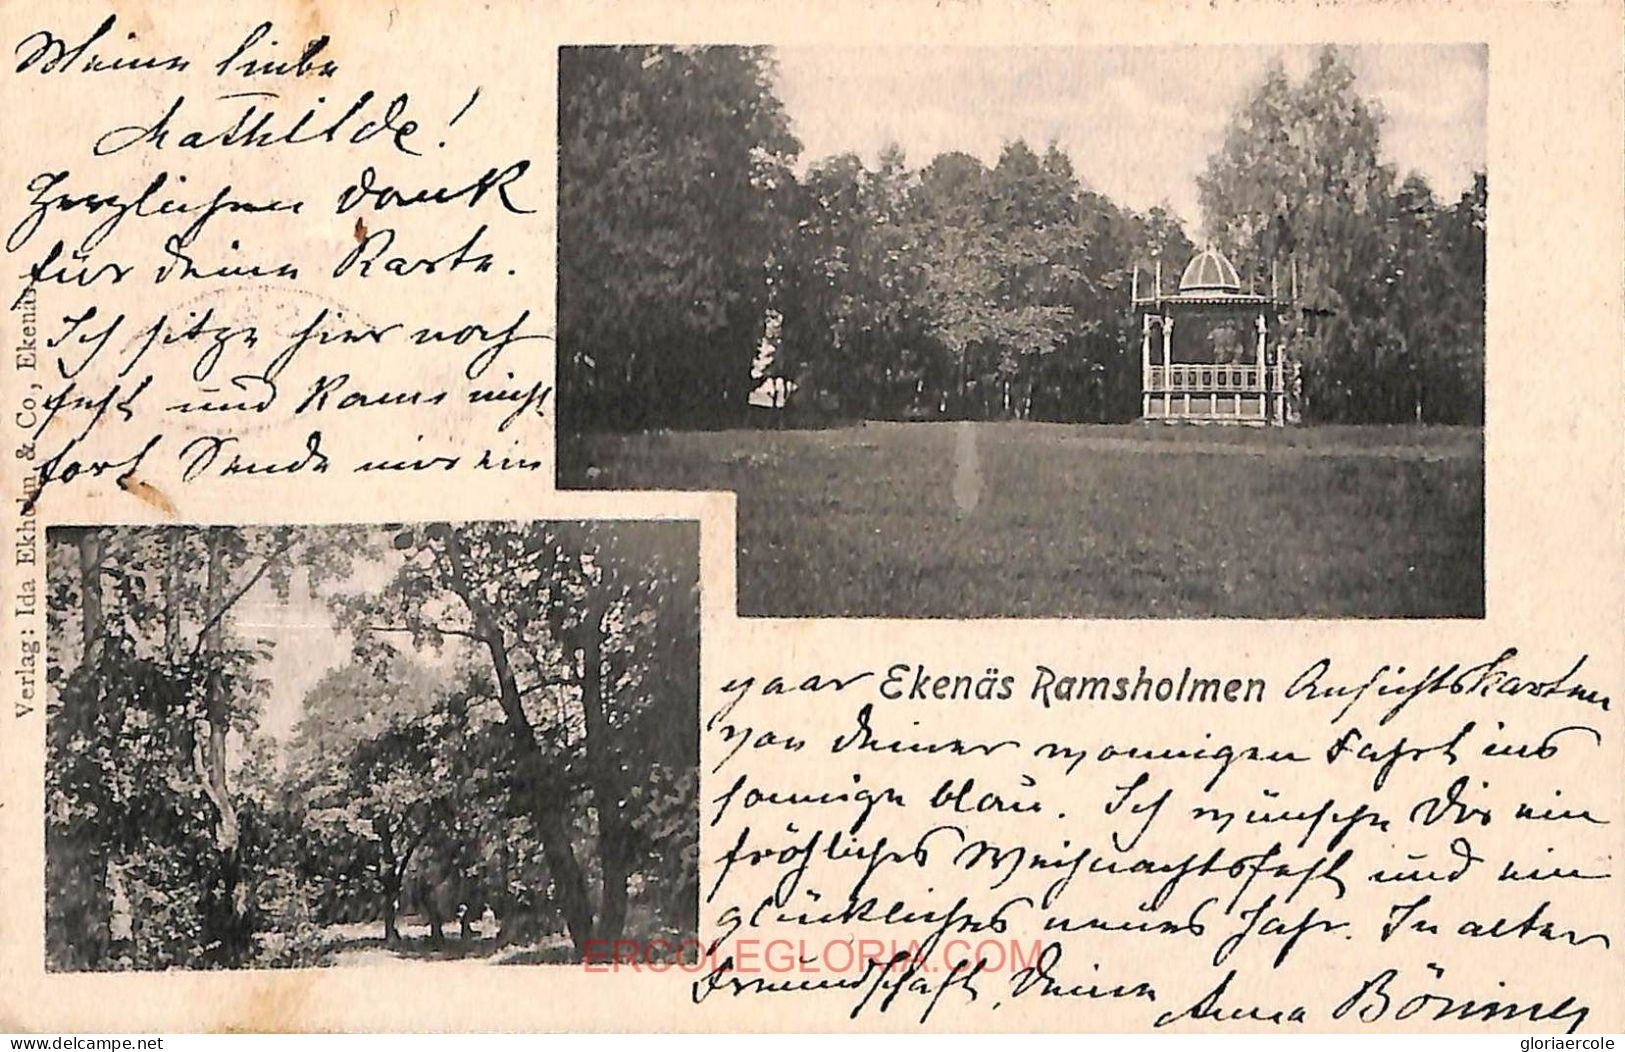 Meine liebe
Mathilde!
Herzlichen Dank
für deine Karte.
Ich sitze hier noch
fest und kann nicht
fort. Sende mir ein
paar
Ekenäs Ramsholmen
Ansichtskarten
von deiner wonnigen Fahrt ins
sonnige blau. Ich wünsche Dir ein
fröhliches Weihnachtsfest und ein
glückliches neues Jahr. In alter
Freundschaft, Deine
Anna
Verlag: Ida Ekholm & Co., Ekenäs.
ERCOLEGLORIA.COM
delcampe.net
gloriaercole